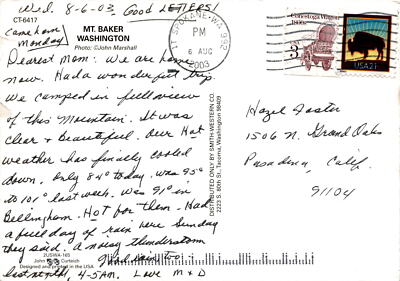 Wed. 8-6-03 Good LETTERS!
CT-6417
Came home
Monday
MT. BAKER
WASHINGTON
Photo: ©John Marshall
Dearest Mom: We are home
now. Had a wonderful trip.
We camped in full view
of this Mountain. It was
clear & Beautiful. Our Hot
weather has finally cooled
down, only 84° today. was 95°
to 101° last week. Was 91° in
Bellingham. Hot for them. Had
a full day of rain here Sunday
they said. A noisy thunderstorm
last night, 4-5AM. Love M & D
& had rain too.
2USWA-165
Curteich
Designed and printed in the USA
DISTRIBUTED ONLY BY SMITH-WESTERN CO.
2223 S. 80th St., Tacoma, Washington 98409
SPOKANE WA 992
PM
6 AUG
2003
Conestoga Wagon
1800s
3
USA
USA 21
Hazel Foster
1506 N. Grand Oaks
Pasadena, Calif.
91104